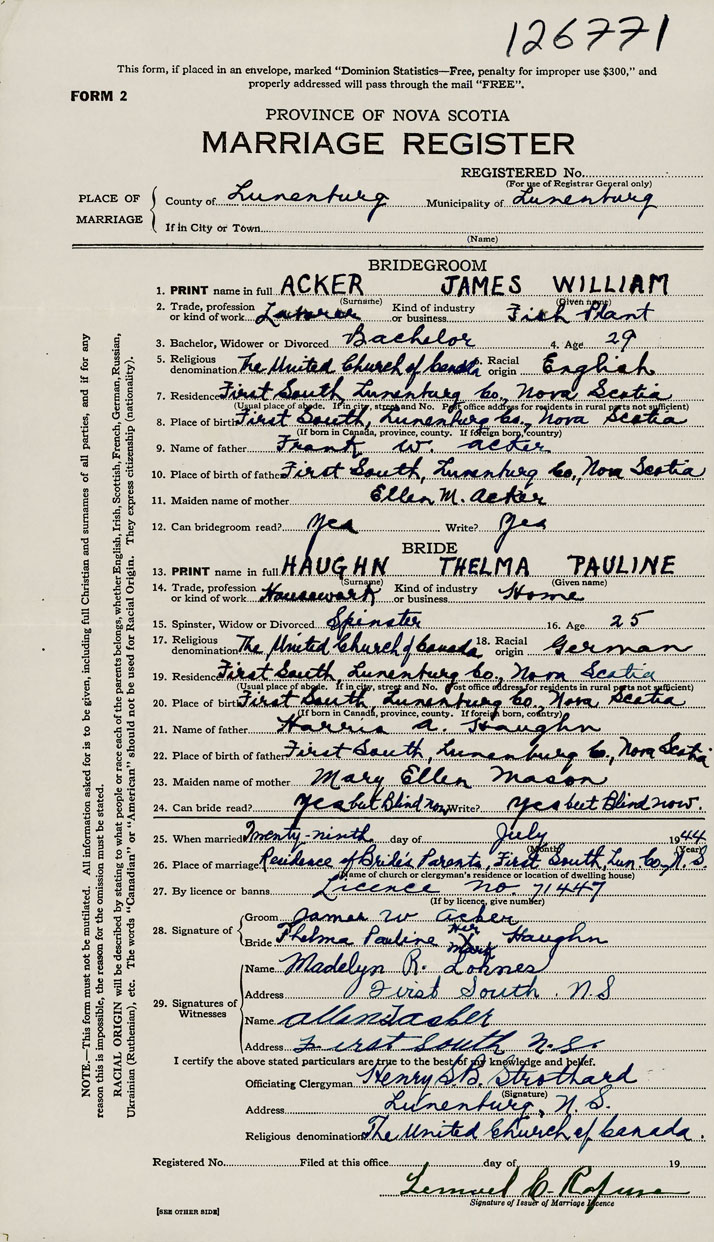 126771
This form, if placed in an envelope, marked "Dominion Statistics—Free, penalty for improper use $300," and
properly addressed will pass through the mail "FREE".
FORM 2
PROVINCE OF NOVA SCOTIA
MARRIAGE REGISTER
REGISTERED No.
(For use of Registrar General only)
PLACE OF MARRIAGE
County of Lunenburg Municipality of Lunenburg
If in City or Town
(Name)
BRIDEGROOM
1. PRINT name in full ACKER JAMES WILLIAM
(Surname) (Given name)
2. Trade, profession or kind of work Laborer Kind of industry or business Fish Plant
3. Bachelor, Widower or Divorced Bachelor 4. Age 29
5. Religious denomination The United Church of Canada 6. Racial origin English
7. Residence First South, Lunenburg Co., Nova Scotia
(Usual place of abode. If in city, street and No. Post office address for residents in rural parts not sufficient)
8. Place of birth First South, Lunenburg Co., Nova Scotia
(If born in Canada, province, county. If foreign born, country)
9. Name of father Frank W. Acker
10. Place of birth of father First South, Lunenburg Co., Nova Scotia
11. Maiden name of mother Ellen M. Acker
12. Can bridegroom read? Yes Write? Yes
BRIDE
13. PRINT name in full HAUGHN THELMA PAULINE
(Surname) (Given name)
14. Trade, profession or kind of work Housework Kind of industry or business Home
15. Spinster, Widow or Divorced Spinster 16. Age 25
17. Religious denomination The United Church of Canada 18. Racial origin German
19. Residence First South, Lunenburg Co., Nova Scotia
(Usual place of abode. If in city, street and No. Post office address for residents in rural parts not sufficient)
20. Place of birth First South, Lunenburg Co., Nova Scotia
(If born in Canada, province, county. If foreign born, country)
21. Name of father Harris A. Haughn
22. Place of birth of father First South, Lunenburg Co., Nova Scotia
23. Maiden name of mother Mary Ellen Mason
24. Can bride read? Yes but Blind now, Write? Yes but Blind now.
25. When married Twenty-ninth day of July 1944
(Month) (Year)
26. Place of marriage Residence of Bride's Parents, First South, Lun. Co., N.S.
(Name of church or clergyman's residence or location of dwelling house)
27. By licence or banns Licence No. 71447
(If by licence, give number)
28. Signature of
Groom James W Acker
Bride Thelma Pauline Her X Mark Haughn
29. Signatures of Witnesses
Name Madelyn R. Lohnes
Address First South. N.S
Name Allen Tasker
Address First South N.S.
I certify the above stated particulars are true to the best of my knowledge and belief.
Officiating Clergyman Henry S.B. Strothard
(Signature)
Address Lunenburg, N.S.
Religious denomination The United Church of Canada.
Registered No. Filed at this office day of 19
Lemuel C. Rafuse
Signature of Issuer of Marriage Licence
[SEE OTHER SIDE]
NOTE.—This form must not be mutilated. All information asked for is to be given, including full Christian and surnames of all parties, and if for any
reason this is impossible, the reason for the omission must be stated.
RACIAL ORIGIN will be described by stating to what people or race each of the parents belongs, whether English, Irish, Scottish, French, German, Russian,
Ukrainian (Ruthenian), etc. The words "Canadian" or "American" should not be used for Racial Origin. They express citizenship (nationality).